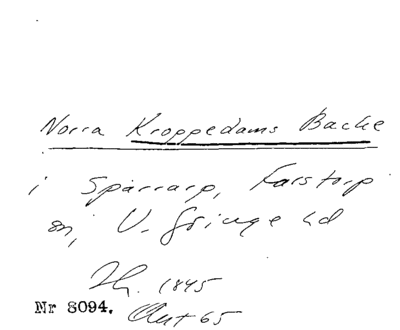 Norra Kroppedams Backe
i Sparrarp, Farstorp
sn, V. Göinge hd
1845
Nr 8094. Avt 65